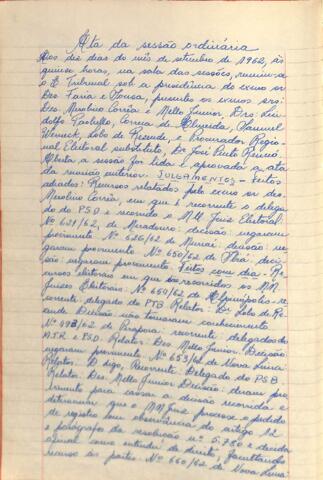 Ata da sessão ordinária
Aos dez dias do mês de setembro de 1962, às
quinze horas, na sala das sessões, reuniu-se
o E. Tribunal sob a presidência do exmo sr
Des Faria e Sousa, presentes os exmos srs:
Des. Mesolino Corrêa e Mello Junior, Drs. Lin
dolfo Paolielo, Correa de Almeida, Samuel
Werneck, Lobo de Resende e Procurador Regio
nal Eleitoral substituto, Dr José Pinto Renó.
Aberta a sessão foi lida e aprovada a ata
da reunião anterior. JULGAMENTOS - Feitos
adiados: Recursos relatados pelo exmo sr des
Mesolino Corrêa, em que é recorrente o delega
do do PSD e recorrido o MM Juiz Eleitoral:
Nº 621/62, de Miradouro: decisão: negaram
provimento. Nº 626/62 de Muriaé: decisão: ne
garam provimento. Nº 650/62 de deci
são: negaram provimento. Feitos com dia - Re
cursos eleitorais em que são recorridos os MM
Juízes Eleitorais: Nº 640/62 de Alpinópolis - re
corrente: delegado do PTB Relator: Dr Lobo de Re
sende Decisão: não tomaram conhecimento
Nº 493/62 de Pirapora: recorrente delegados do
M.T.R e PSD. Relator: Des Mello Junior. Decisão:
negaram provimento. Nº 653/62 de Nova Lima
Relator: digo, Recorrente: Delegado do PSB
Relator: Des. Mello Junior. Decisão: deram pro
vimento para cassar a decisão recorrida e
determinar que o MM Juiz processe o pedido
de registro com observância do artigo 12
e parágrafos da resolução nº 6.780 e decida
afinal como entender de direito, facultando
recurso às partes. Nº 660/62 de Nova Lima: